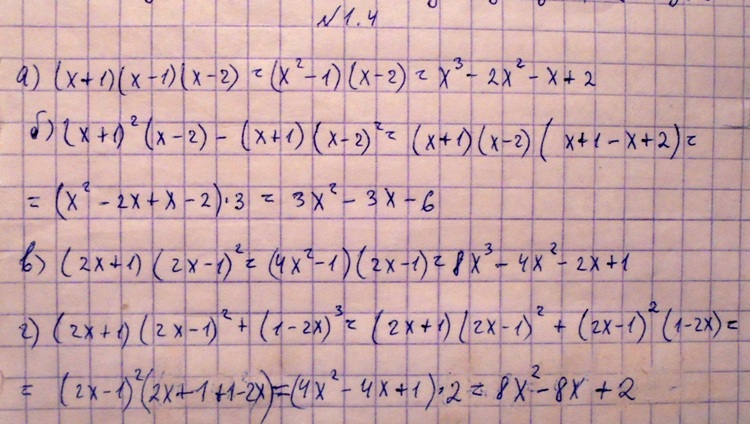 №1.4
а) (x+1)(x-1)(x-2) = (x²-1)(x-2) = x³ - 2x² - x + 2
б) (x+1)²(x-2) - (x+1)(x-2)² = (x+1)(x-2)(x+1-x+2) =
= (x² - 2x + x - 2)·3 = 3x² - 3x - 6
в) (2x+1)(2x-1)² = (4x²-1)(2x-1) = 8x³ - 4x² - 2x + 1
г) (2x+1)(2x-1)² + (1-2x)³ = (2x+1)(2x-1)² + (2x-1)²(1-2x) =
= (2x-1)²(2x+1+1-2x) = (4x² - 4x + 1)·2 = 8x² - 8x + 2